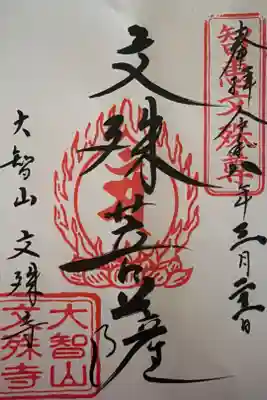 奉拝 令和 年三月 日
智慧文殊尊
文殊菩薩
大智山 文殊寺
大智山
文殊寺